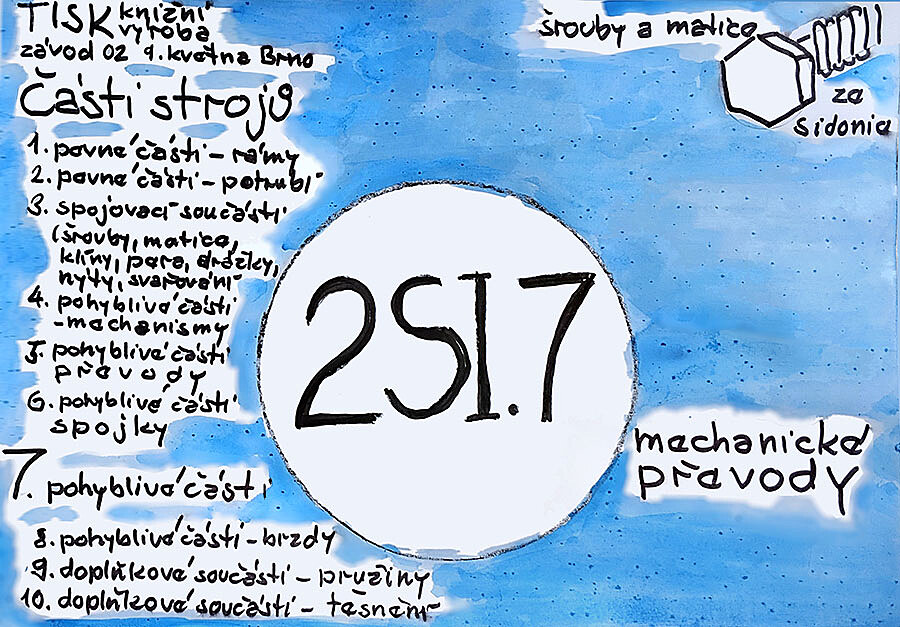 TISK knižní
výroba
závod 02 9. května Brno
Části strojů
1. pevné části - rámy
2. pevné části - potrubí
3. spojovací součásti
(šrouby, matice,
klíny, pera, drážky,
nýty, svařování
4. pohyblivé části
- mechanismy
5. pohyblivé části
převody
6. pohyblivé části
spojky
7. pohyblivé části
8. pohyblivé části - brzdy
9. doplňkové součásti - pružiny
10. doplňkové součásti - těsnění
2SI.7
šrouby a matice
za
sidonia
mechanické
převody